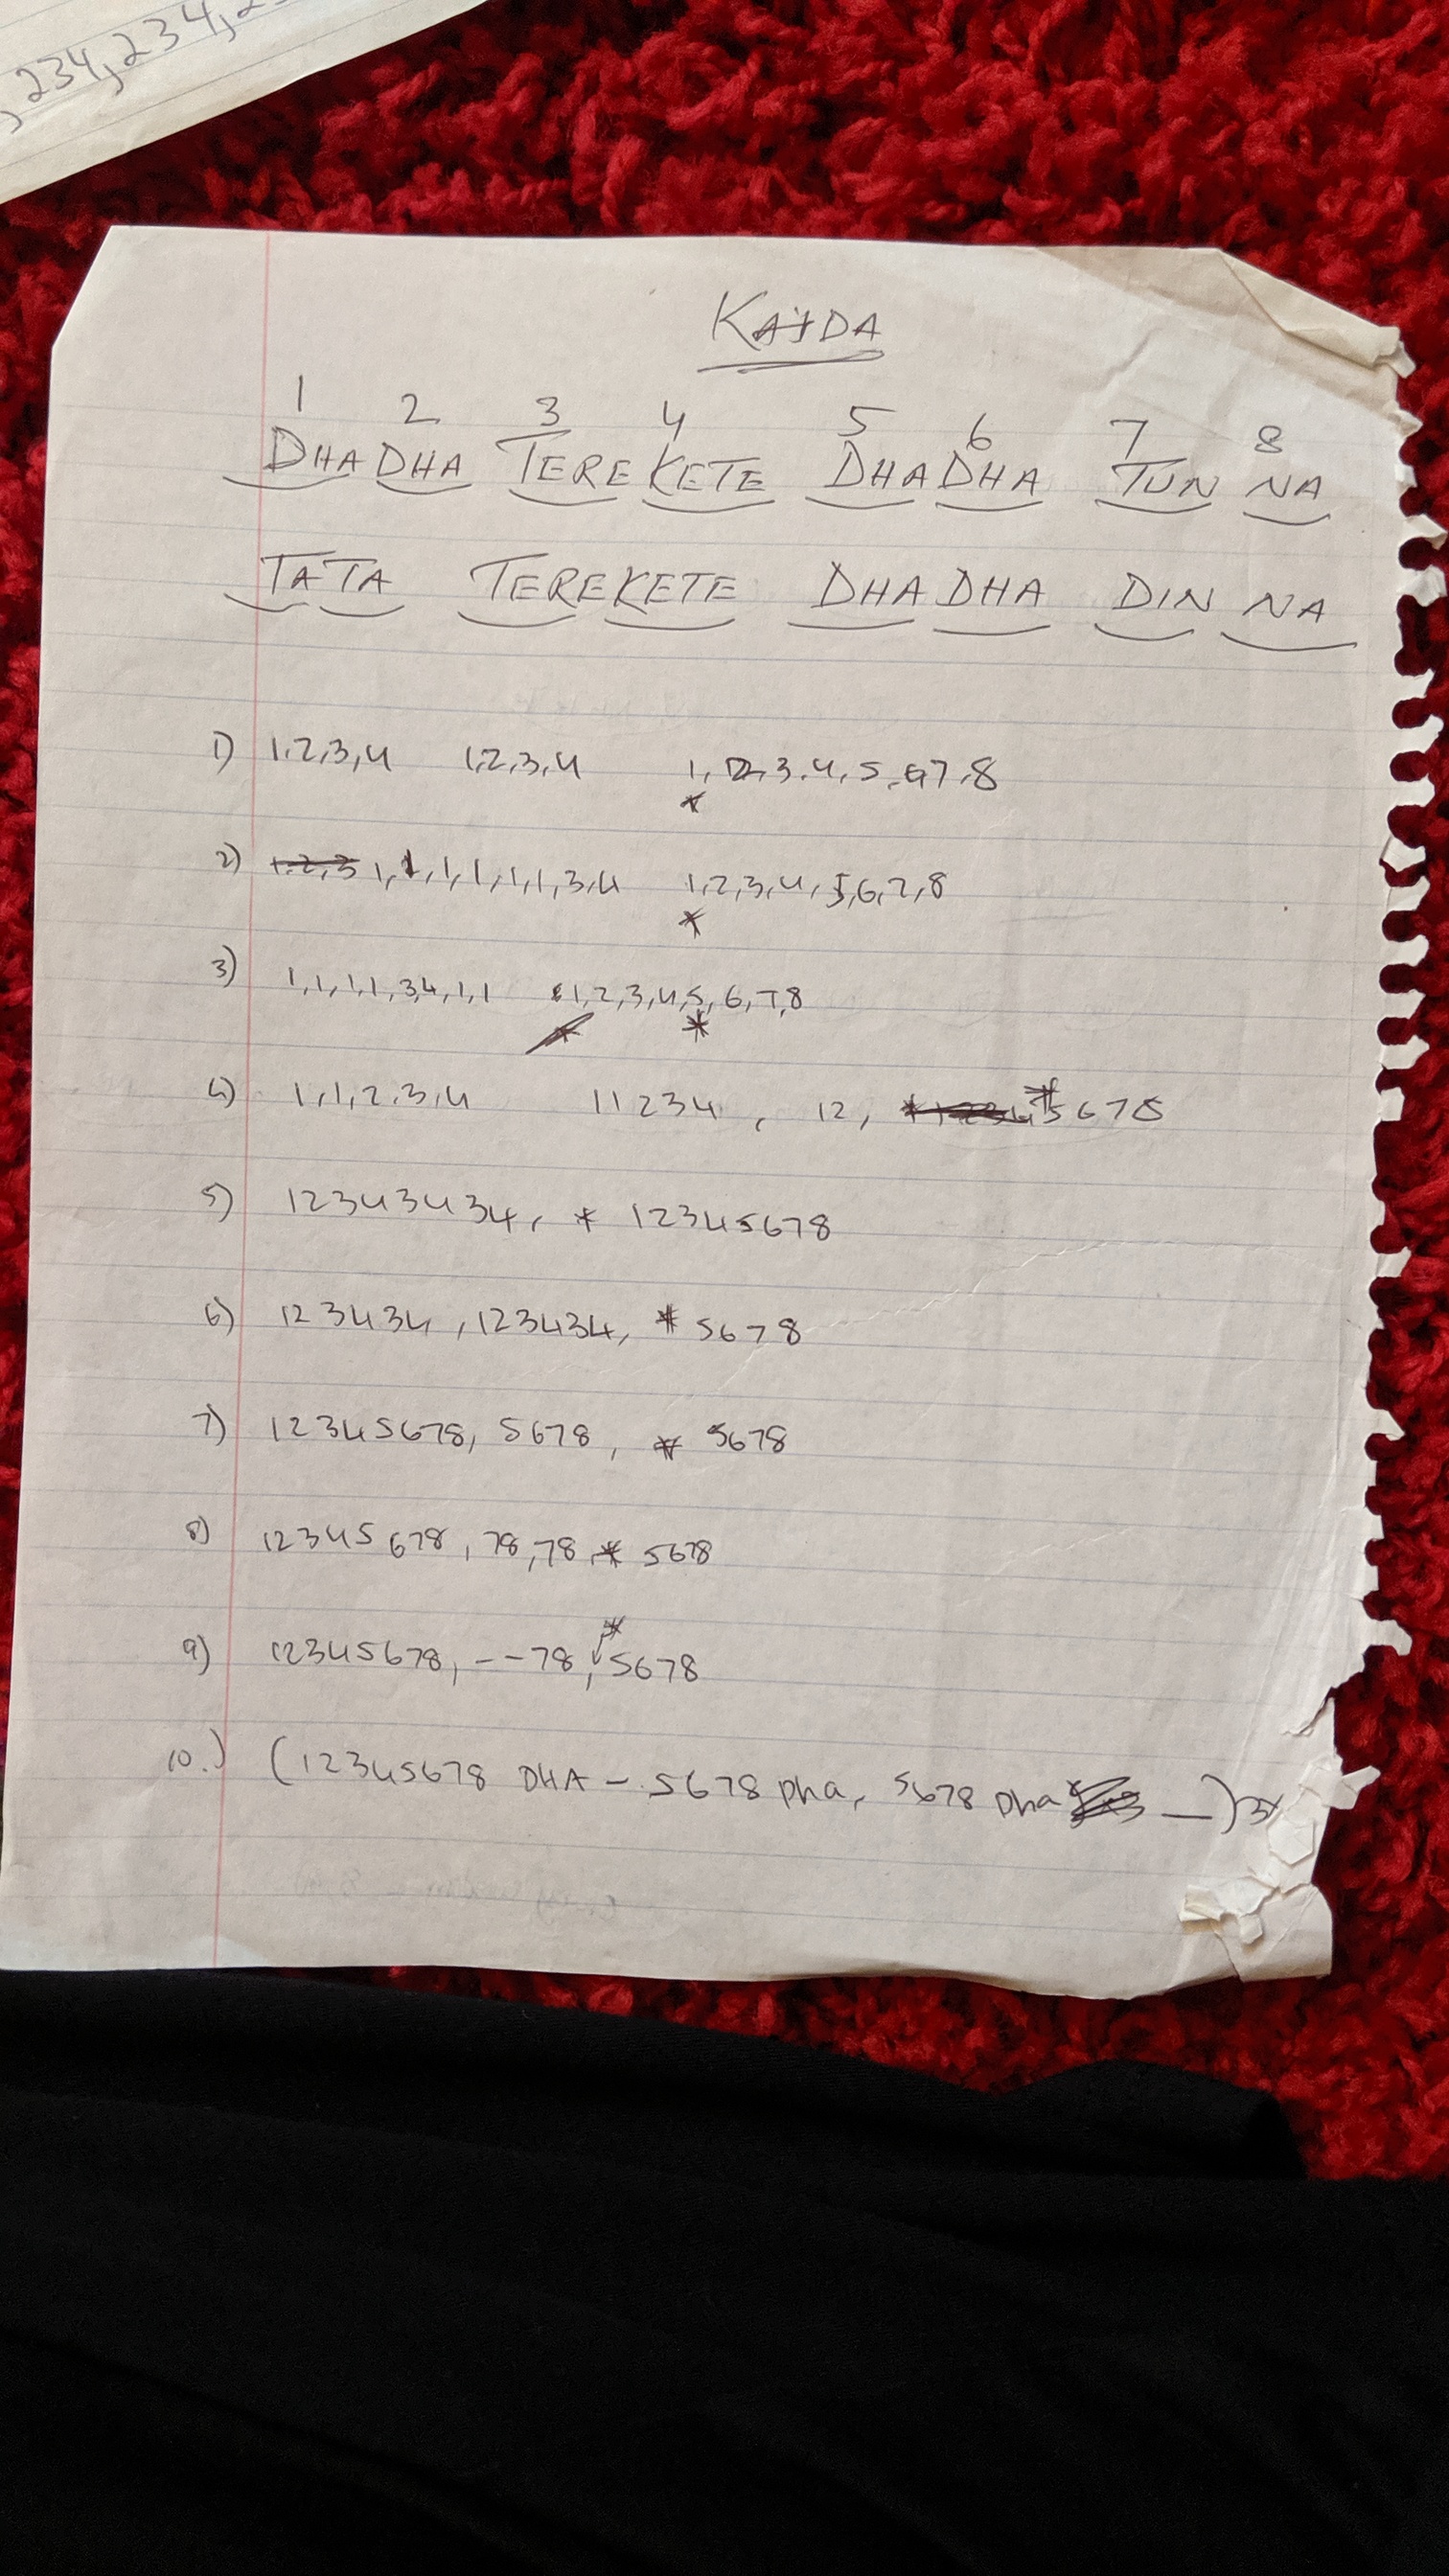 , 234, 234, 2
KAYDA
1 2 3 4 5 6 7 8
DHA DHA TERE KETE DHA DHA TUN NA
TA TA TERE KETE DHA DHA DIN NA
1) 1,2,3,4 1,2,3,4 1,2,3,4,5,6,7,8
*
2) 1,1,1,1,1,1,3,4 1,2,3,4,5,6,7,8
*
3) 1,1,1,1,3,4,1,1 1,2,3,4,5,6,7,8
*
4) 1,1,2,3,4 11234, 12, *5678
5) 12343434, * 12345678
6) 123434, 123434, * 5678
7) 12345678, 5678, * 5678
8) 12345678, 78, 78, * 5678
9) 12345678, --78, *5678
10.) (12345678 DHA - 5678 Dha, 5678 Dha —) 3x